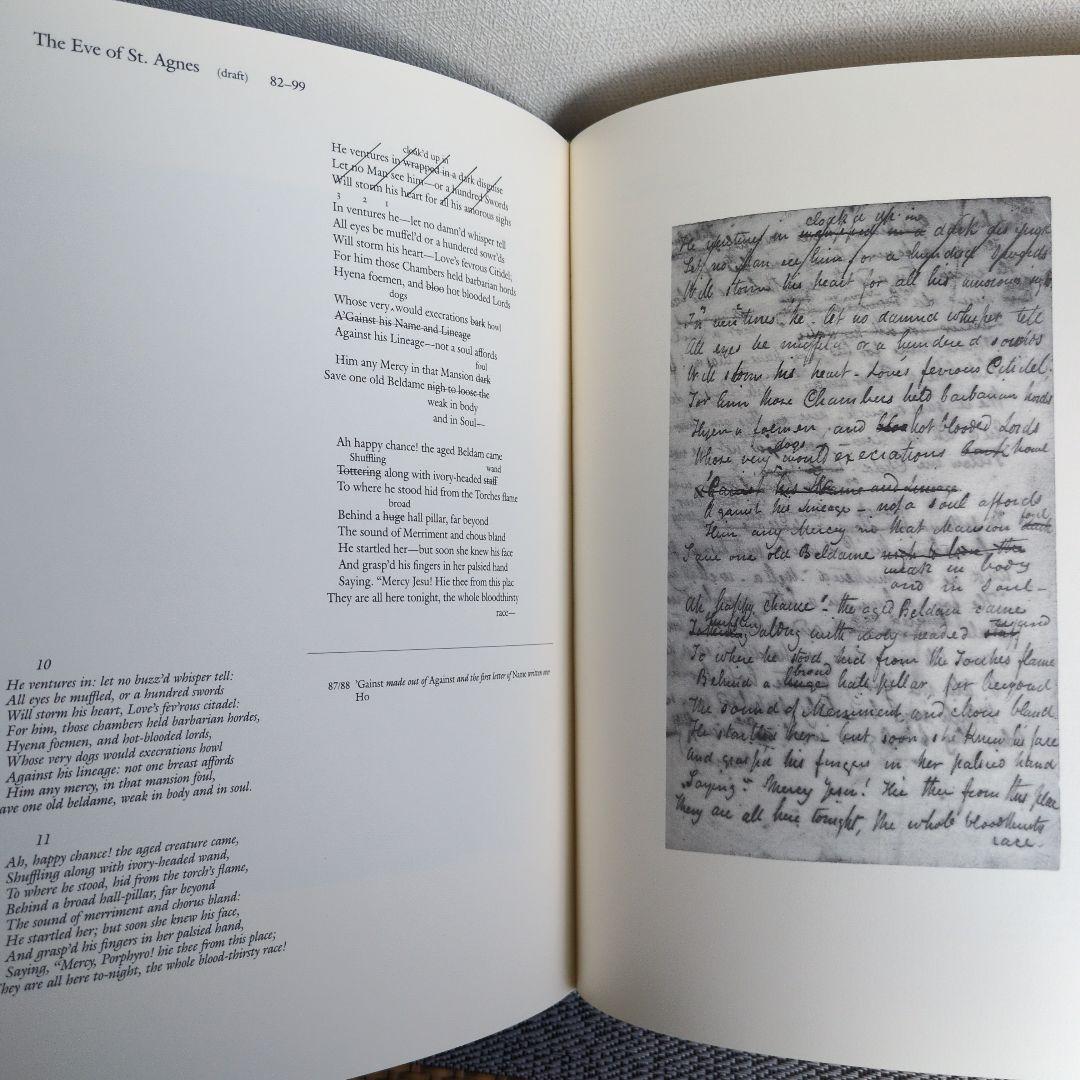 The Eve of St. Agnes (draft) 82–99
cloak'd up in
He ventures in wrapped in a dark disguise
Let no Man see him—or a hundred Swords
Will storm his heart for all his amorous sighs
3 2 1
In ventures he—let no damn'd whisper tell
All eyes be muffel'd or a hundred sowr'ds
Will storm his heart—Love's fevrous Citidel;
For him those Chambers held barbarian hords
Hyena foemen, and bloo hot blooded Lords
dogs
Whose very would execrations bark howl
A'Gainst his Name and Lineage
Against his Lineage--not a soul affords
foul
Him any Mercy in that Mansion dark
Save one old Beldame nigh to loose the
weak in body
and in Soul—
Ah happy chance! the aged Beldam came
Shuffling wand
Tottering along with ivory-headed staff
To where he stood hid from the Torches flame
broad
Behind a huge hall pillar, far beyond
The sound of Merriment and chous bland
He startled her—but soon she knew his face
And grasp'd his fingers in her palsied hand
Saying. “Mercy Jesu! Hie thee from this plac
They are all here tonight, the whole bloodthirsty
race—
87/88 'Gainst made out of Against and the first letter of Name written over
Ho
10
He ventures in: let no buzz'd whisper tell:
All eyes be muffled, or a hundred swords
Will storm his heart, Love's fev'rous citadel:
For him, those chambers held barbarian hordes,
Hyena foemen, and hot-blooded lords,
Whose very dogs would execrations howl
Against his lineage: not one breast affords
Him any mercy, in that mansion foul,
ave one old beldame, weak in body and in soul.
11
Ah, happy chance! the aged creature came,
Shuffling along with ivory-headed wand,
To where he stood, hid from the torch's flame,
Behind a broad hall-pillar, far beyond
The sound of merriment and chorus bland:
He startled her; but soon she knew his face,
And grasp'd his fingers in her palsied hand,
Saying, “Mercy, Porphyro! hie thee from this place;
hey are all here to-night, the whole blood-thirsty race!
cloak'd up in
He ventures in wrapped in a dark disguise
Let no Man see him or a hundred Swords
Will storm his heart for all his amorous sighs
In ventures he let no damned whisper tell
All eyes be muffel'd or a hundred sowrds
Will storm his heart - Loves fevrous Citidel.
For him those Chambers held barbarian hords
Hyena foemen and bloo hot blooded Lords
dogs
Whose very would execrations bark howl
his Name and Lineage
Against his Lineage - not a soul affords
foul
Him any Mercy in that Mansion dark
Save one old Beldame nigh to loose the
weak in body
and in Soul -
Ah happy chance! the aged Beldam came
Shuffling wand
Tottering along with ivory headed staff
To where he stood hid from the Torches flame
broad
Behind a huge hall pillar, far beyond
The sound of Merriment and chous bland
He startled her - but soon she knew his face
and grasp'd his fingers in her palsied hand
Saying - Mercy Jesu! Hie thee from this place
They are all here tonight, the whole bloodthirsty
race -